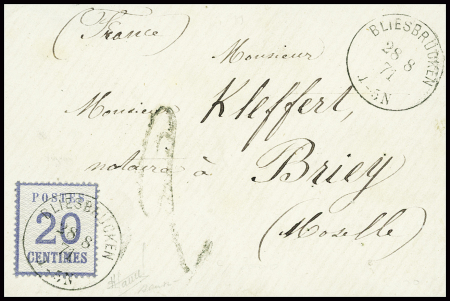 (France)
BLIESBRÜCKEN
28 8
71
4-5N
Monsieur
Monsieur Kleffert,
notaire à Briey
(Moselle)
2
POSTES
20
CENTIMES
BLIESBRÜCKEN
28 8
71